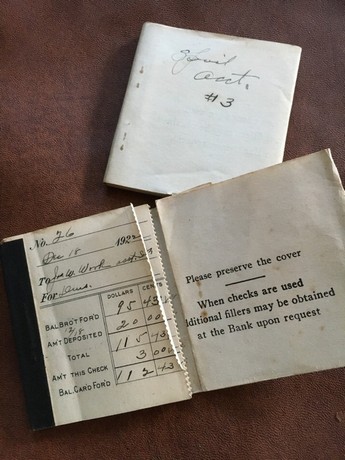 Acct.
#3
No. 26
Dec 18 192
To
For Dues.
DOLLARS CENTS
BAL. BRO'T FOR'D 95 43
12/8
AM'T DEPOSITED 20 00
TOTAL 115 43
AM'T THIS CHECK 3 00
BAL. CAR'D FOR'D 112 43
Please preserve the cover
When checks are used
dditional fillers may be obtained
at the Bank upon request